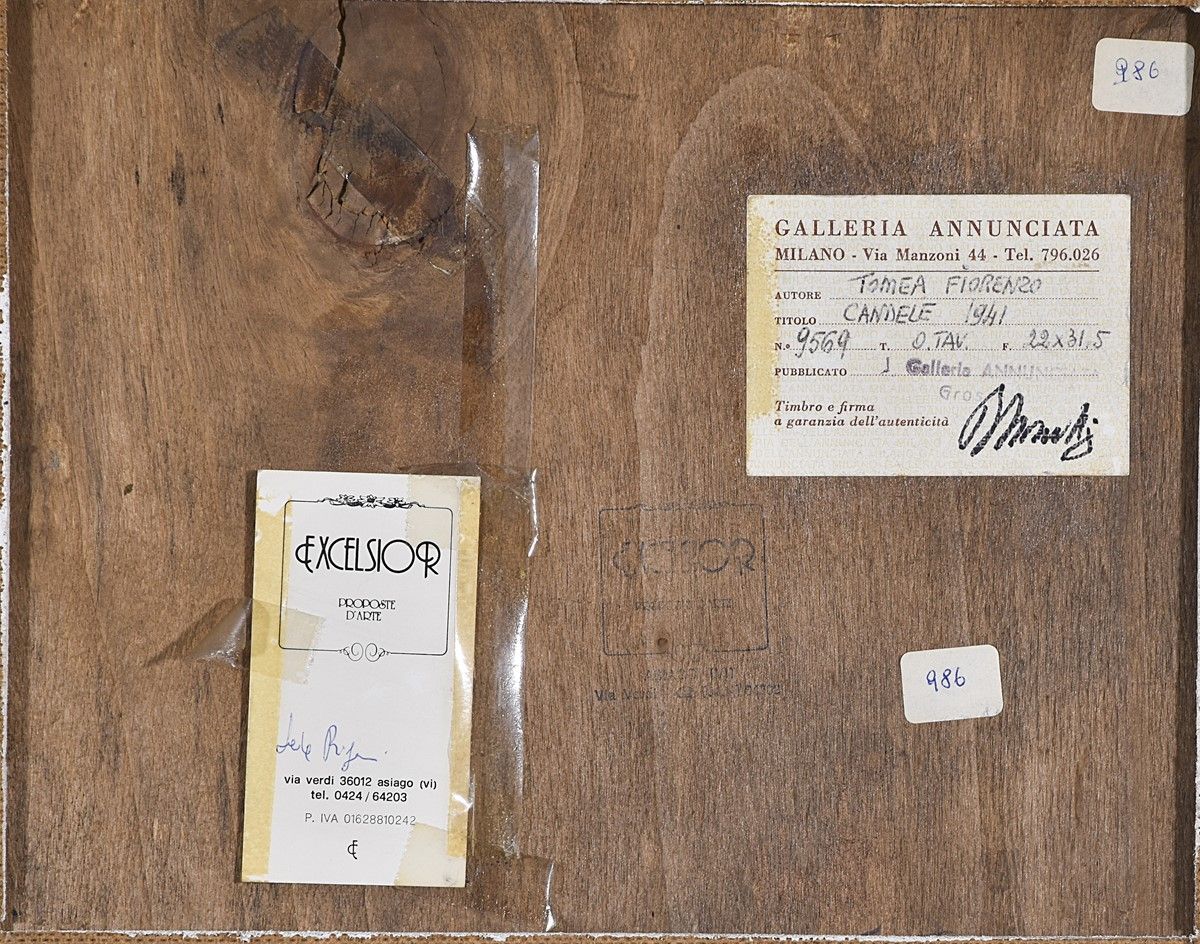 986
GALLERIA ANNUNCIATA
MILANO - Via Manzoni 44 - Tel. 796.026
AUTORE TOMEA FIORENZO
TITOLO CANDELE 1941
N.º 9569 T. O.TAV. F. 22x31.5
PUBBLICATO Galleria ANNUNCIATA
Timbro e firma
a garanzia dell'autenticità
EXCELSIOR
PROPOSTE
D'ARTE
via verdi 36012 asiago (vi)
tel. 0424/64203
P. IVA 01628810242
986